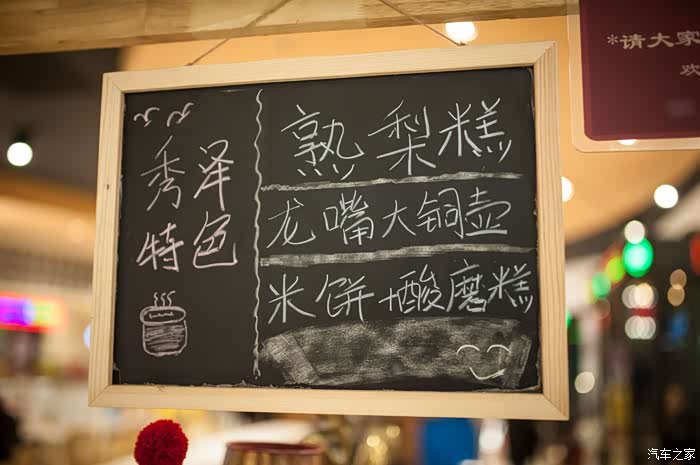 秀泽
特色
熟梨糕
龙嘴大铜壶
米饼+酸磨糕
*请大家
欢
汽车之家